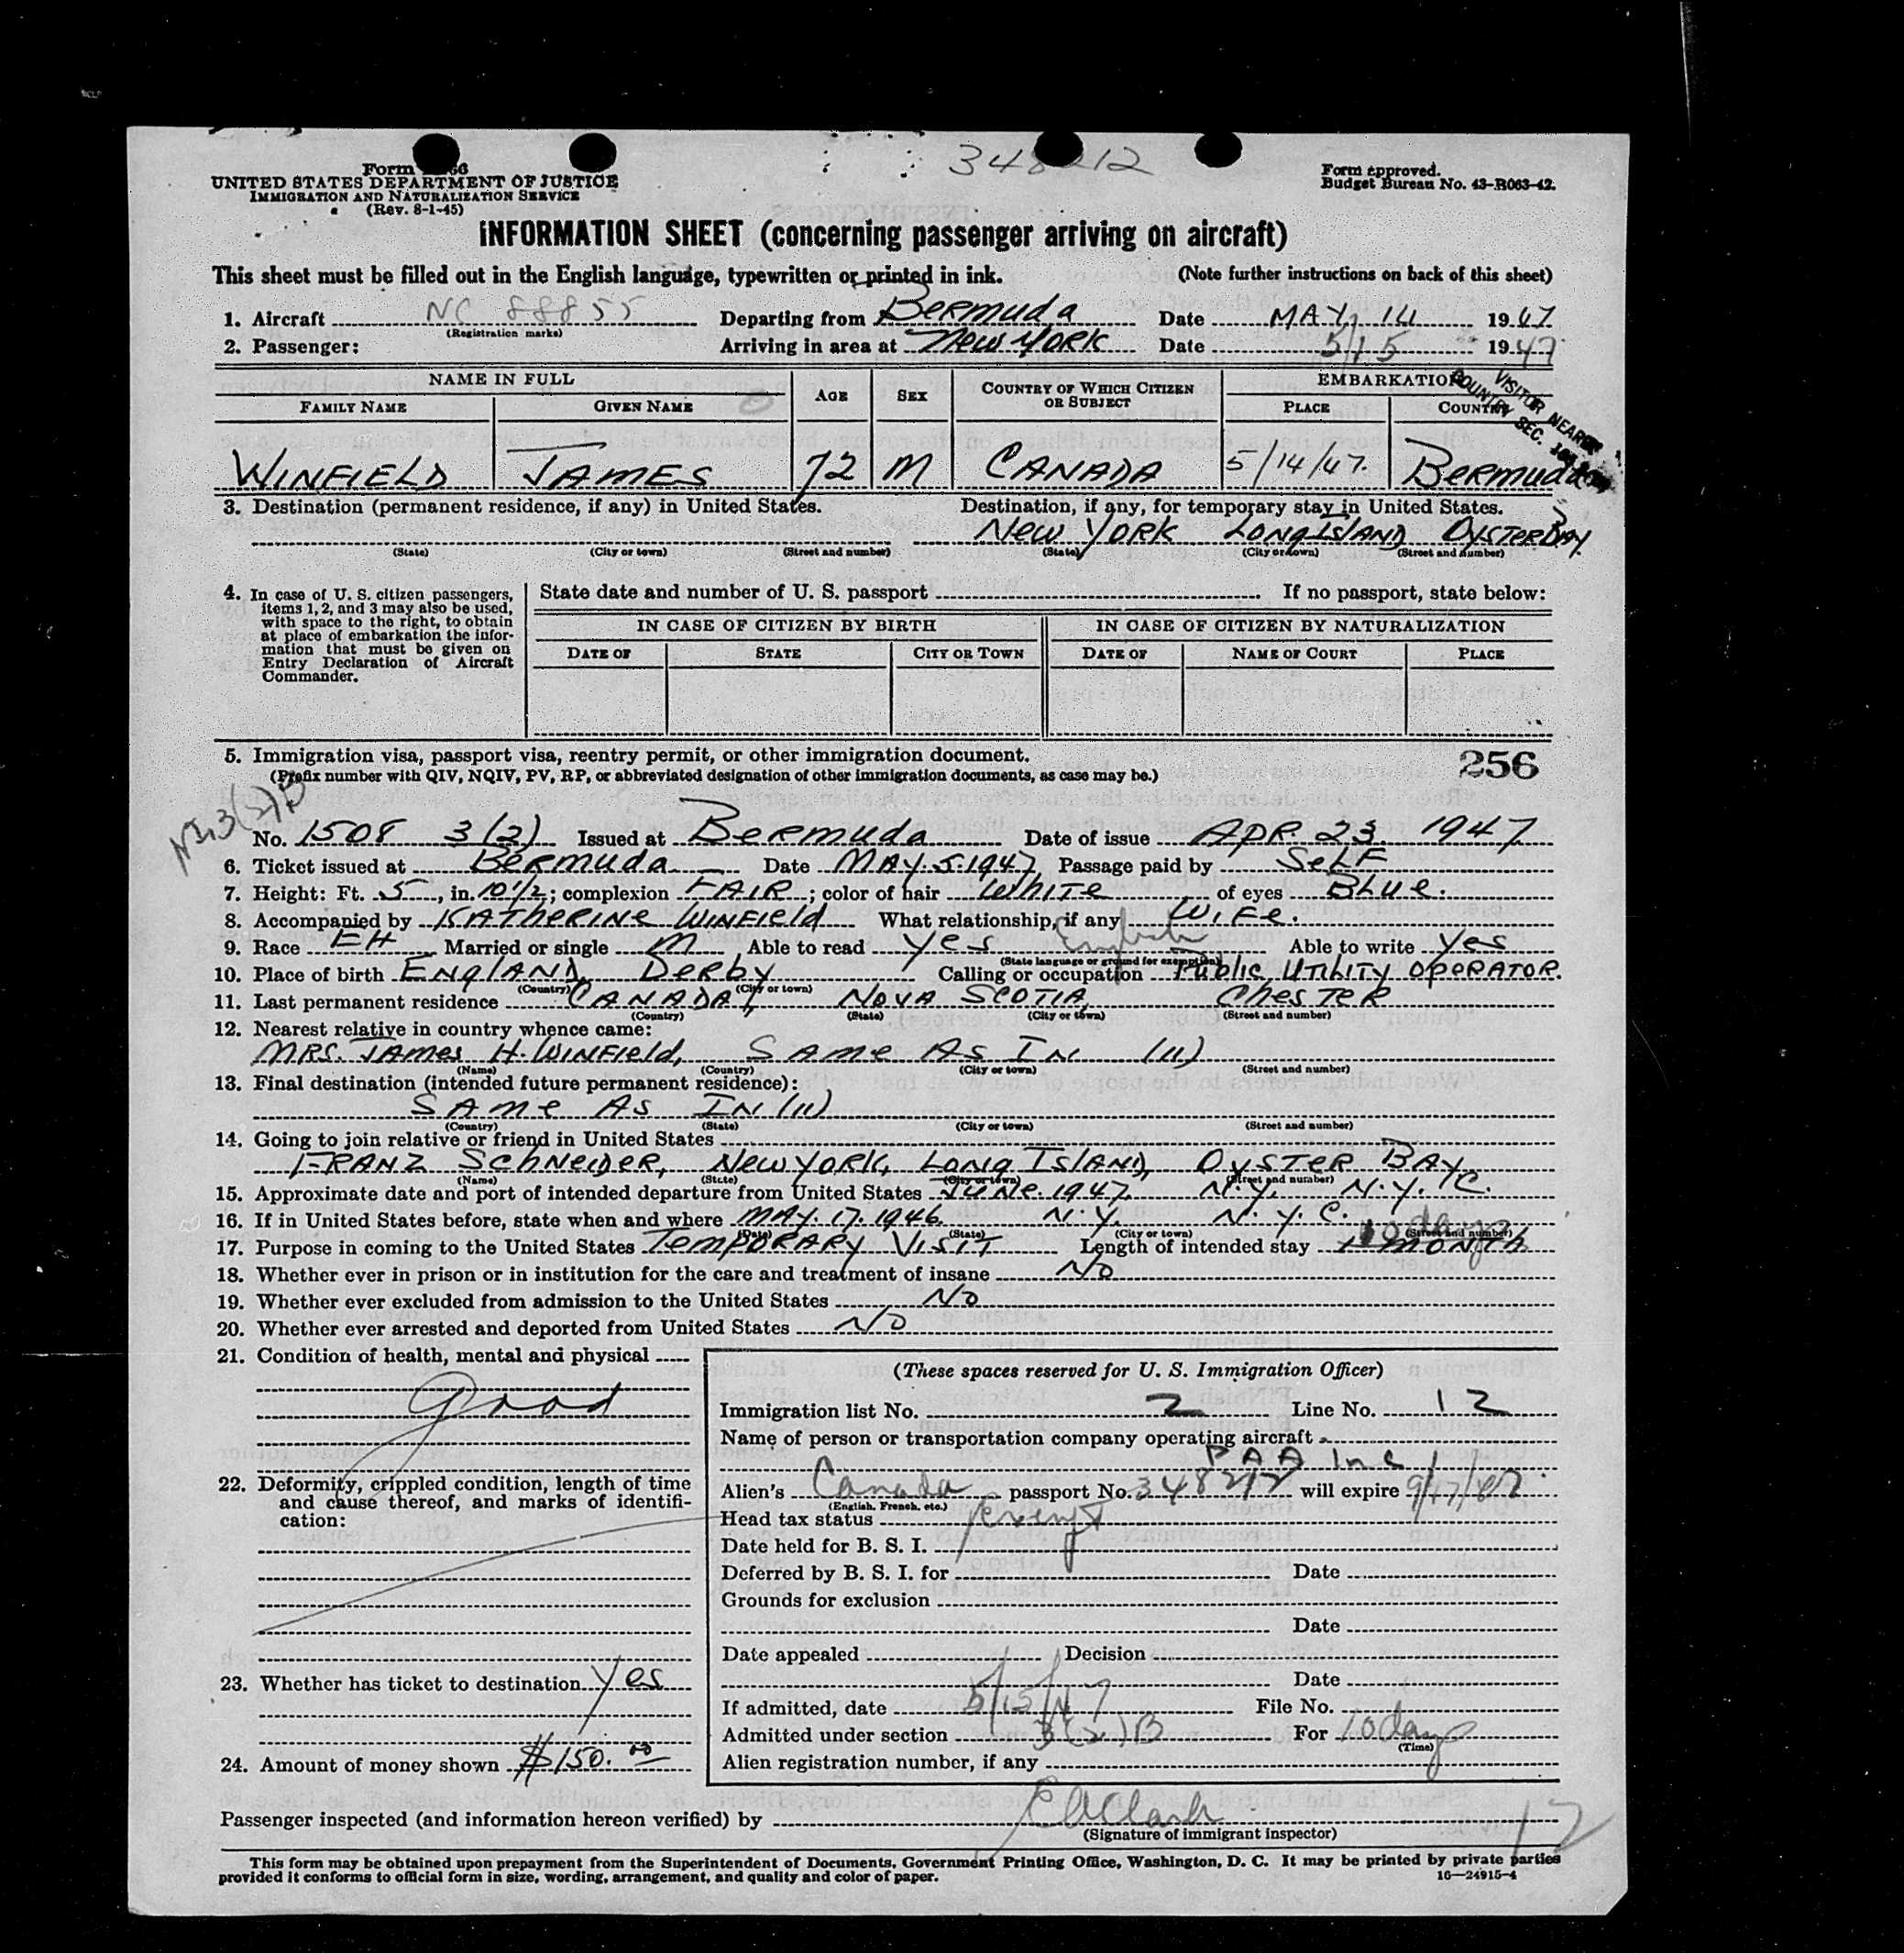 348212
Form
UNITED STATES DEPARTMENT OF JUSTICE
IMMIGRATION AND NATURALIZATION SERVICE
(Rev. 8-1-45)
Form approved.
Budget Bureau No. 43-R063-42.
INFORMATION SHEET (concerning passenger arriving on aircraft)
This sheet must be filled out in the English language, typewritten or printed in ink. (Note further instructions on back of this sheet)
1. Aircraft NC 88855 Departing from Bermuda Date MAY 14 1947
(Registration marks)
2. Passenger: Arriving in area at New York Date 5/15 1947
NAME IN FULL AGE SEX COUNTRY OF WHICH CITIZEN OR SUBJECT EMBARKATION
FAMILY NAME GIVEN NAME PLACE COUNTRY
VISITOR NEAREST
COUNTRY SEC.
WINFIELD JAMES 72 M CANADA 5/14/47. BERMUDA
3. Destination (permanent residence, if any) in United States. Destination, if any, for temporary stay in United States.
New York Long Island Oyster Bay.
(State) (City or town) (Street and number) (State) (City or town) (Street and number)
4. In case of U. S. citizen passengers, items 1, 2, and 3 may also be used, with space to the right, to obtain at place of embarkation the information that must be given on Entry Declaration of Aircraft Commander.
State date and number of U. S. passport If no passport, state below:
IN CASE OF CITIZEN BY BIRTH IN CASE OF CITIZEN BY NATURALIZATION
DATE OF STATE CITY OR TOWN DATE OF NAME OF COURT PLACE
5. Immigration visa, passport visa, reentry permit, or other immigration document. 256
(Prefix number with QIV, NQIV, PV, RP, or abbreviated designation of other immigration documents, as case may be.)
No. 1508 3(2) Issued at Bermuda Date of issue Apr. 23. 1947.
6. Ticket issued at Bermuda Date MAY. 5. 1947 Passage paid by Self
7. Height: Ft. 5, in. 10 1/2; complexion FAIR; color of hair White of eyes Blue.
8. Accompanied by Katherine Winfield What relationship, if any Wife.
9. Race EH Married or single M Able to read yes English Able to write yes
(State language or ground for exemption)
10. Place of birth England Derby Calling or occupation Public Utility Operator.
(Country) (City or town)
11. Last permanent residence CANADA, Nova Scotia, Chester
(Country) (State) (City or town) (Street and number)
12. Nearest relative in country whence came:
MRS. James H. Winfield, Same As In (11)
(Name) (Country) (City or town) (Street and number)
13. Final destination (intended future permanent residence):
Same As In (11)
(Country) (State) (City or town) (Street and number)
14. Going to join relative or friend in United States
Franz Schneider, New York, Long Island, Oyster Bay
(Name) (State) (City or town) (Street and number)
15. Approximate date and port of intended departure from United States June. 1947. N.Y. N.Y.C.
16. If in United States before, state when and where MAY. 17. 1946. N.Y. N.Y.C.
(Date) (State) (City or town) (Street and number)
17. Purpose in coming to the United States Temporary Visit Length of intended stay 1 month 10 days
18. Whether ever in prison or in institution for the care and treatment of insane No
19. Whether ever excluded from admission to the United States No
20. Whether ever arrested and deported from United States No
21. Condition of health, mental and physical
good
22. Deformity, crippled condition, length of time and cause thereof, and marks of identification:
23. Whether has ticket to destination yes
24. Amount of money shown $150.00
(These spaces reserved for U. S. Immigration Officer)
Immigration list No. 2 Line No. 12
Name of person or transportation company operating aircraft
PAA Inc
Alien's Canada passport No. 348212 will expire
(English, French, etc.)
Head tax status Exempt
Date held for B. S. I.
Deferred by B. S. I. for Date
Grounds for exclusion
Date
Date appealed Decision
Date
If admitted, date 5/15/47 File No.
Admitted under section 3(2)B For 10 days
(Time)
Alien registration number, if any
Passenger inspected (and information hereon verified) by
(Signature of immigrant inspector)
12
This form may be obtained upon prepayment from the Superintendent of Documents, Government Printing Office, Washington, D. C. It may be printed by private parties
provided it conforms to official form in size, wording, arrangement, and quality and color of paper. 16—24915-4